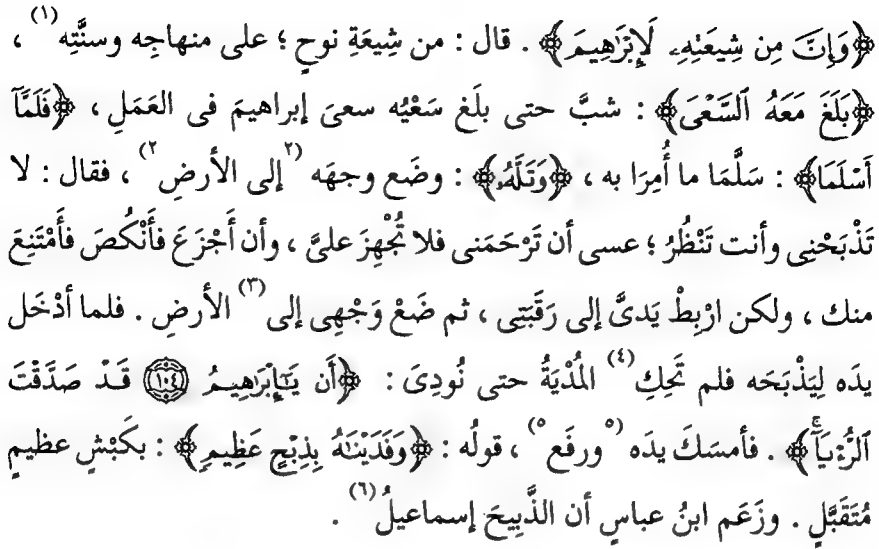 ﴿وَإِنَّ مِن شِيعَتِهِۦ لَإِبْرَٰهِيمَ﴾ . قال : من شِيعَةِ نوحٍ ؛ على منهاجِه وسنَّتِه(١) ،
﴿بَلَغَ مَعَهُ ٱلسَّعْىَ﴾ : شبَّ حتى بلَغ سَعْيُه سعىَ إبراهيمَ فى العَمَلِ ، ﴿فَلَمَّآ
أَسْلَمَا﴾ : سَلَّمَا ما أُمِرَا به ، ﴿وَتَلَّهُۥ﴾ : وضَع وجهَه (٢إلى الأرضِ٢) ، فقال : لا
تَذْبَحْنِى وأنت تَنْظُرُ ؛ عسى أن تَرْحَمَنى فلا تُجْهِزَ علىَّ ، وأن أَجْزَعَ فأَنْكُصَ فأَمْتَنِعَ
منك ، ولكن ارْبِطْ يَدىَّ إلى رَقَبَتِى ، ثم ضَعْ وَجْهِى إلى(٣) الأرضِ . فلما أدْخَل
يدَه لِيَذْبَحَه فلم تَحِكِ(٤) المُدْيَةُ حتى نُودِىَ : ﴿أَن يَـٰٓإِبْرَٰهِيمُ ۝١٠٤ قَدْ صَدَّقْتَ
ٱلرُّءْيَآ ۚ﴾ . فأمسَكَ يدَه (٥ورفَع٥) ، قولُه : ﴿وَفَدَيْنَـٰهُ بِذِبْحٍ عَظِيمٍ﴾ : بكَبْشٍ عظيمٍ
مُتَقَبَّلٍ . وزَعَم ابنُ عباسٍ أن الذَّبِيحَ إسماعيلُ(٦) .